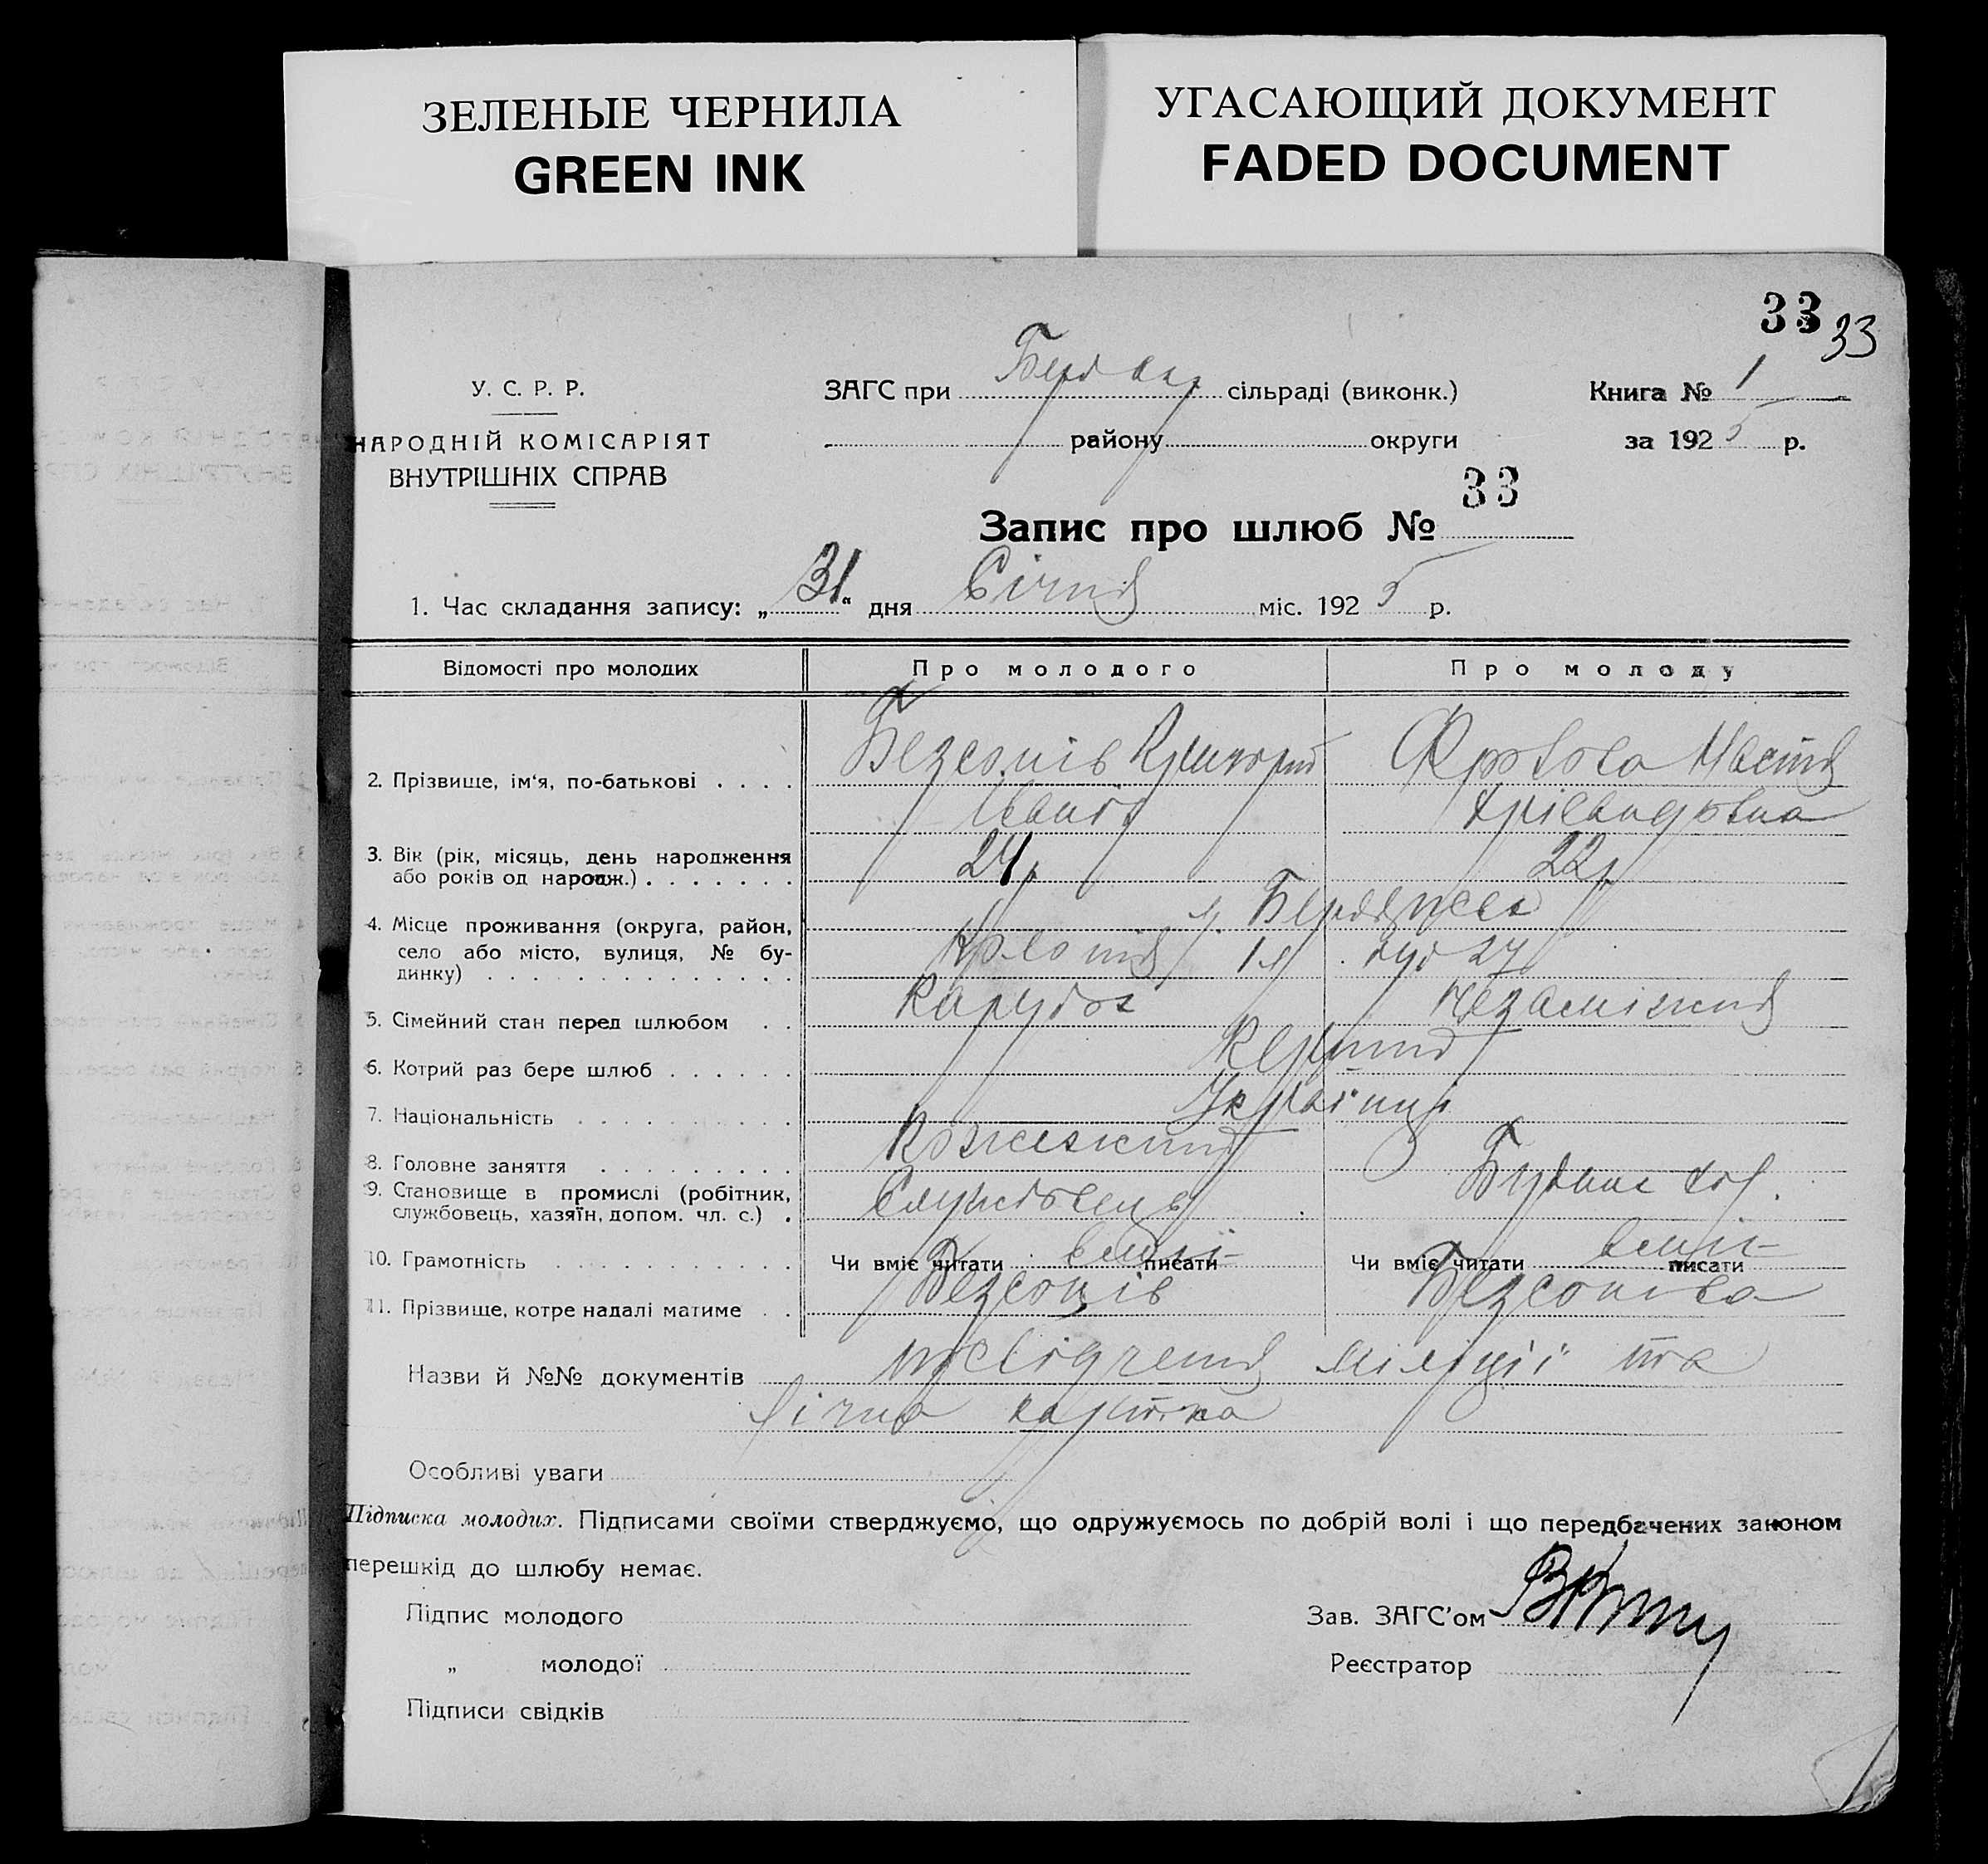 ЗЕЛЕНЫЕ ЧЕРНИЛА
GREEN INK
УГАСАЮЩИЙ ДОКУМЕНТ
FADED DOCUMENT
33 33
У. С. Р. Р.
НАРОДНІЙ КОМІСАРІЯТ
ВНУТРІШНІХ СПРАВ
ЗАГС при сільраді (виконк.)
району округи
Книга № 1
за 1925 р.
Запис про шлюб № 33
1. Час складання запису: „31“ дня Січня міс. 1925 р.
Відомості про молодих Про молодого Про молоду
2. Прізвище, ім‘я, по-батькові Безсонів Григорій Фролова Настя
Іванів
3. Вік (рік, місяць, день народження 24р 22р
або років од народж.)
4. Місце проживання (округа, район, м. Бердянськ
село або місто, вулиця, № бу- Колонія 1я буд 27
динку)
5. Сімейний стан перед шлюбом Парубок Незаміжня
6. Котрий раз бере шлюб Перший
7. Національність Українці
8. Головне заняття
9. Становище в промислі (робітник, Службовець
службовець, хазяїн, допом. чл. с.)
10. Грамотність Чи вміє читати писати вміє Чи вміє читати писати вміє
11. Прізвище, котре надалі матиме Безсонів Безсонова
Назви й №№ документів посвідчення міліції та
лічна картка
Особливі уваги
Підписка молодих. Підписами своїми стверджуємо, що одружуємось по добрій волі і що передбачених законом
перешкід до шлюбу немає.
Підпис молодого
„ молодої
Підписи свідків
Зав. ЗАГС’ом
Реєстратор